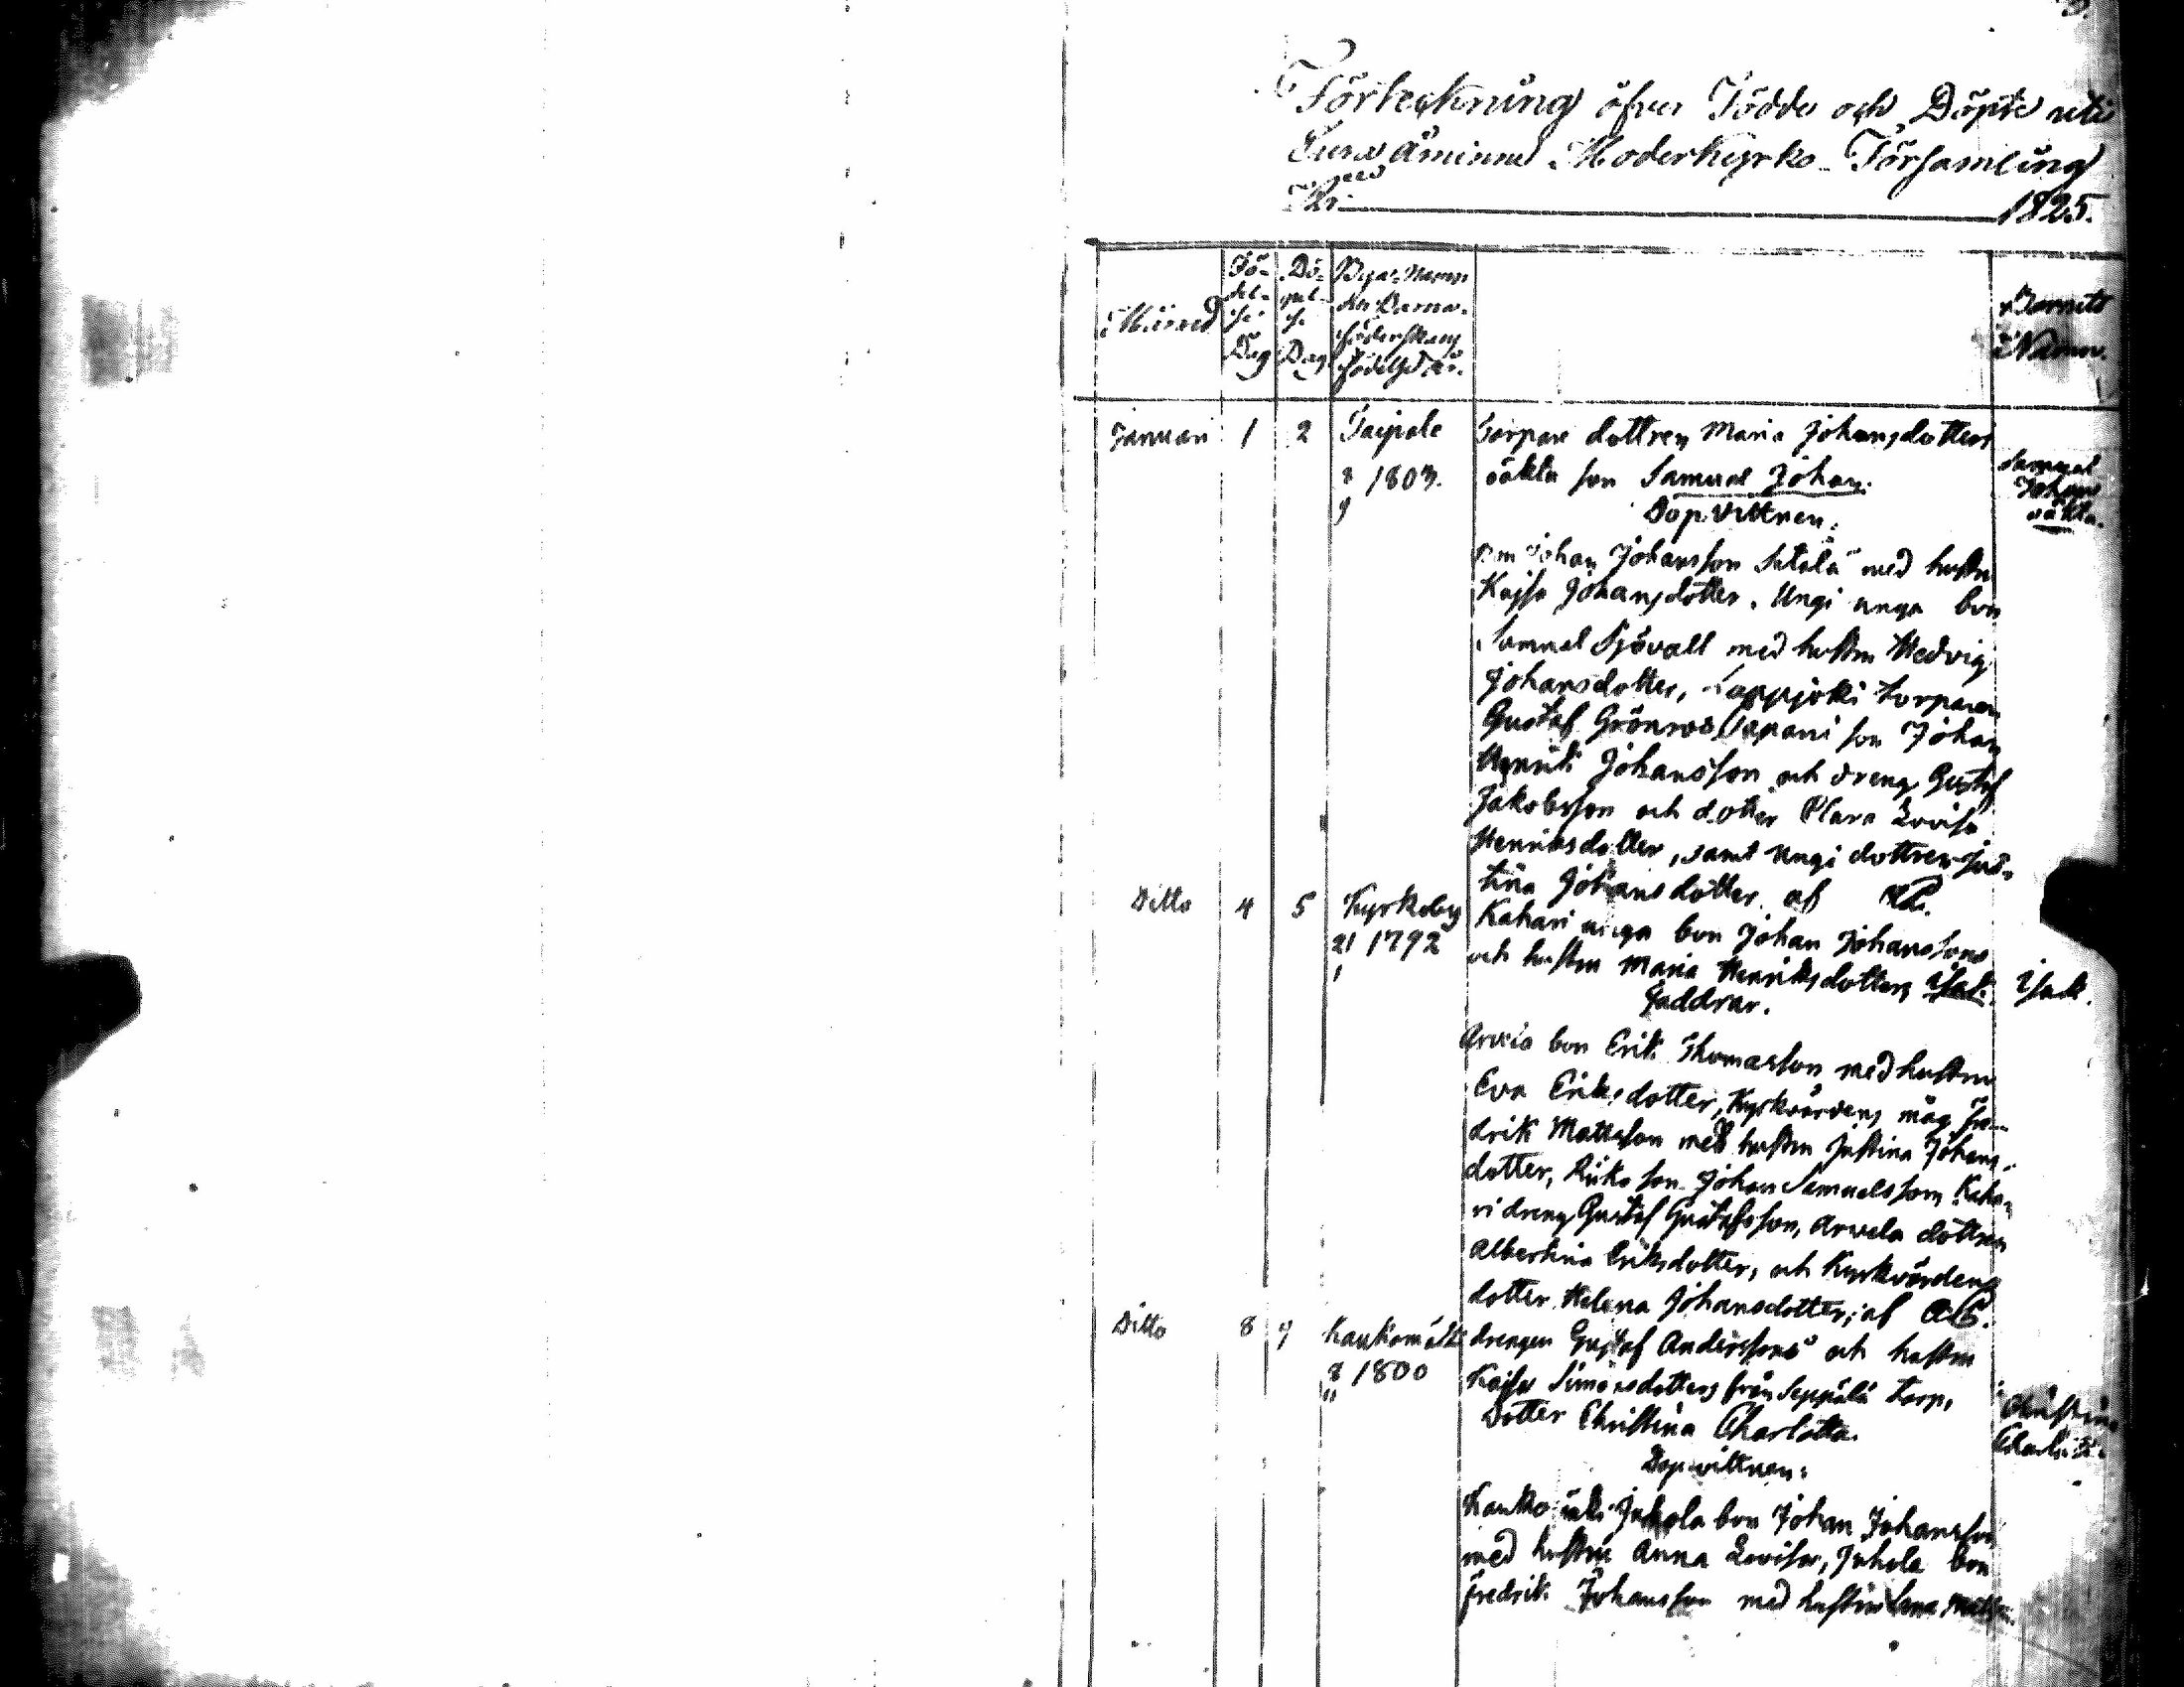 Förteckning öfver Födde och Döpte uti
Eura åminne Moderkyrko-Församling
1825.
Månad
Fö-
del-
se
Dag
Dö-
pel-
se
Dag
Bya-Namn
Födelse år.
Barnets
Namn.
Januari 1 2 Taipale
8 1803.
9
Torpare dottren Maria Johansdotters
oäkta son Samuel Johan.
Samuel
Johan
oäkta.
Dop Vittnen:
Johan Johansson Sutela med hustru
Kajsa Johansdotter. Ungi unga bon
Samuel Sjövall med hustru Hedvig
Johansdotter, Lappjoki torparen
Gustaf Grönroos, son Johan
Henrik Johansson och dreng Gustaf
Jakobsson och dotter Clara Lovisa
Henriksdotter, samt Ungi dottren Jus-
tina Johansdotter. af
Ditto 4 5 Kyrkoby
21 1792
1
Kahari unga bon Johan Johanssons
och hustru Maria Henriksdotters Isak.
Isak.
Faddrar.
bon Erik Thomasson med hustru
Eva Eriksdotter, Kyrkvärdens måg Fre-
drik Mattsson med hustru Justina Johans-
dotter, Riiko son Johan Samuelsson, Kaha-
ri dreng Gustaf Gustafsson, Arvela dottren
Albertina Eriksdotter, och Kyrkvärdens
dotter Helena Johansdotter; af
Ditto 8 9
8 1800
11
drengen Gustaf Anderssons och hustru
Kajsa Simonsdotters från Seppälä torp,
Dotter Christina Charlotta.
Christina
Dopvittnen:
Juhola bon Johan Johansson
med hustru Anna Lovisa, Juhola bon
Fredrik Johansson med hustru Lena